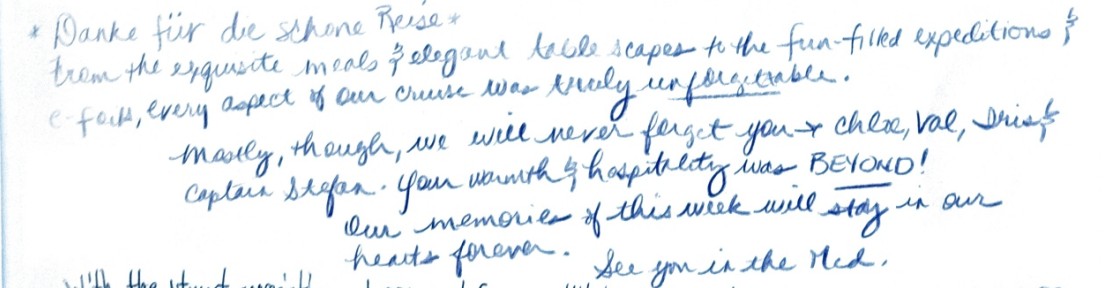 * Danke für die schöne Reise *
from the exquisite meals & elegant table scapes to the fun-filled expeditions &
e-foils, every aspect of our cruise was truly unforgettable.
Mostly, though, we will never forget you → Chloe, Val, Dris &
Captain Stefan. Your warmth & hospitality was BEYOND!
Our memories of this week will stay in our
hearts forever.
See you in the Med.
With the